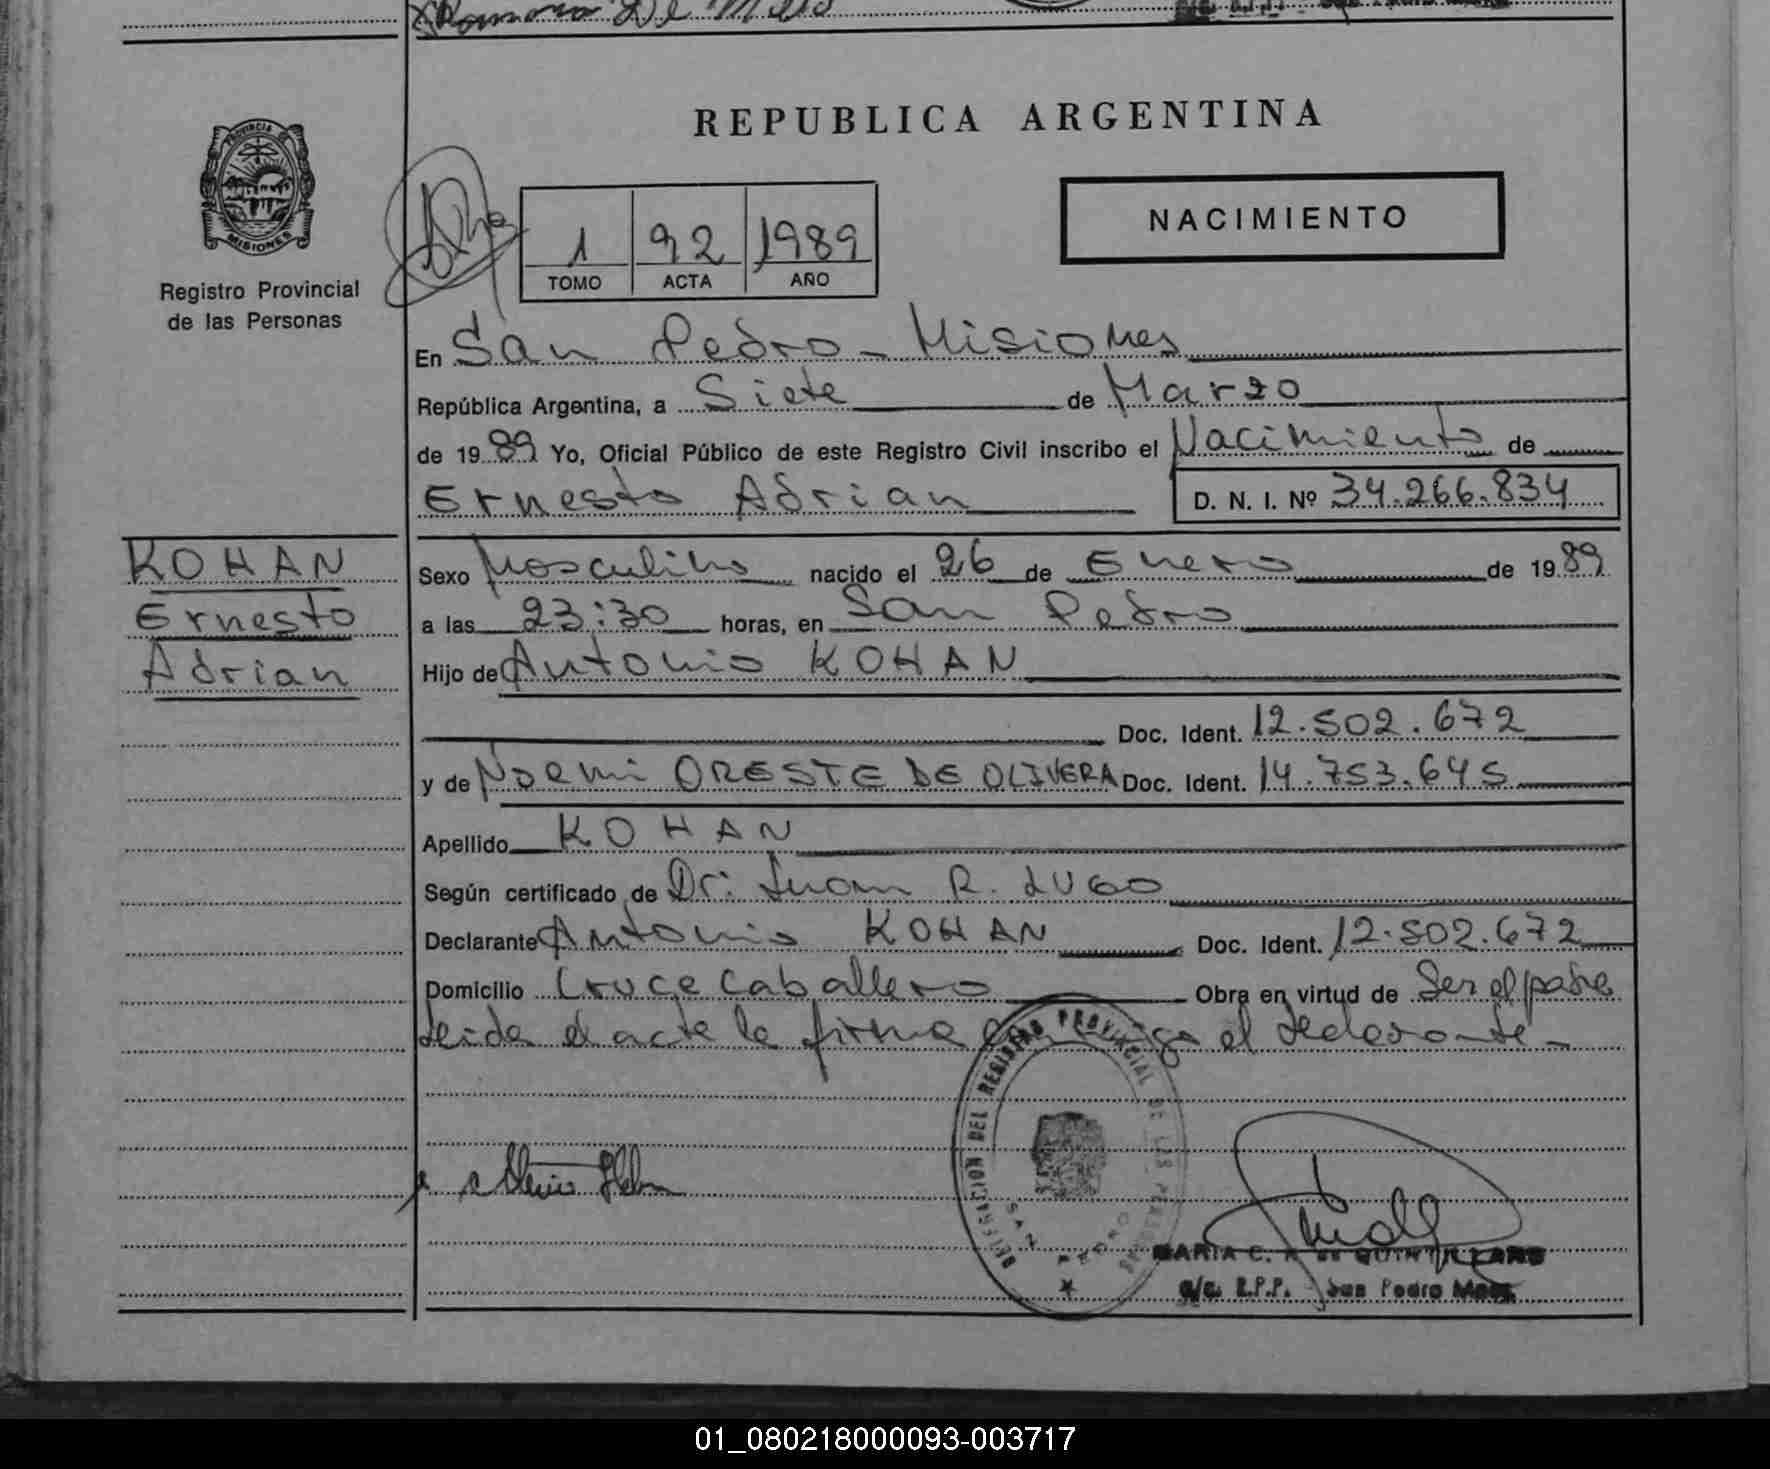 Ramona De Mello
PROVINCIA DE
MISIONES
Registro Provincial
de las Personas
REPUBLICA ARGENTINA
NACIMIENTO
1 92 1989
TOMO ACTA AÑO
En San Pedro - Misiones
República Argentina, a Siete de Marzo
de 1989 Yo, Oficial Público de este Registro Civil inscribo el Nacimiento de
Ernesto Adrian D. N. I. Nº 34.266.834
KOHAN
Ernesto
Adrian
Sexo Masculino nacido el 26 de Enero de 1989
a las 23:30 horas, en San Pedro
Hijo de Antonio KOHAN
Doc. Ident. 12.502.672
y de Noemi ORESTE DE OLIVERA Doc. Ident. 14.753.645
Apellido KOHAN
Según certificado de Dr: Juan R. LUGO
Declarante Antonio KOHAN Doc. Ident. 12.502.672
Domicilio Cruce Caballero Obra en virtud de Ser el padre
Leida el acta la firma conmigo el declarante -
DELEGACION DEL REGISTRO PROVINCIAL DE LAS PERSONAS
SAN PEDRO
MARIA C. de QUINTILLANO
a/c. R.P.P. San Pedro Mnes.
01_080218000093-003717